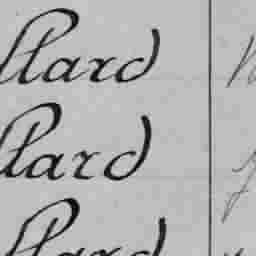 llard
llard
llard